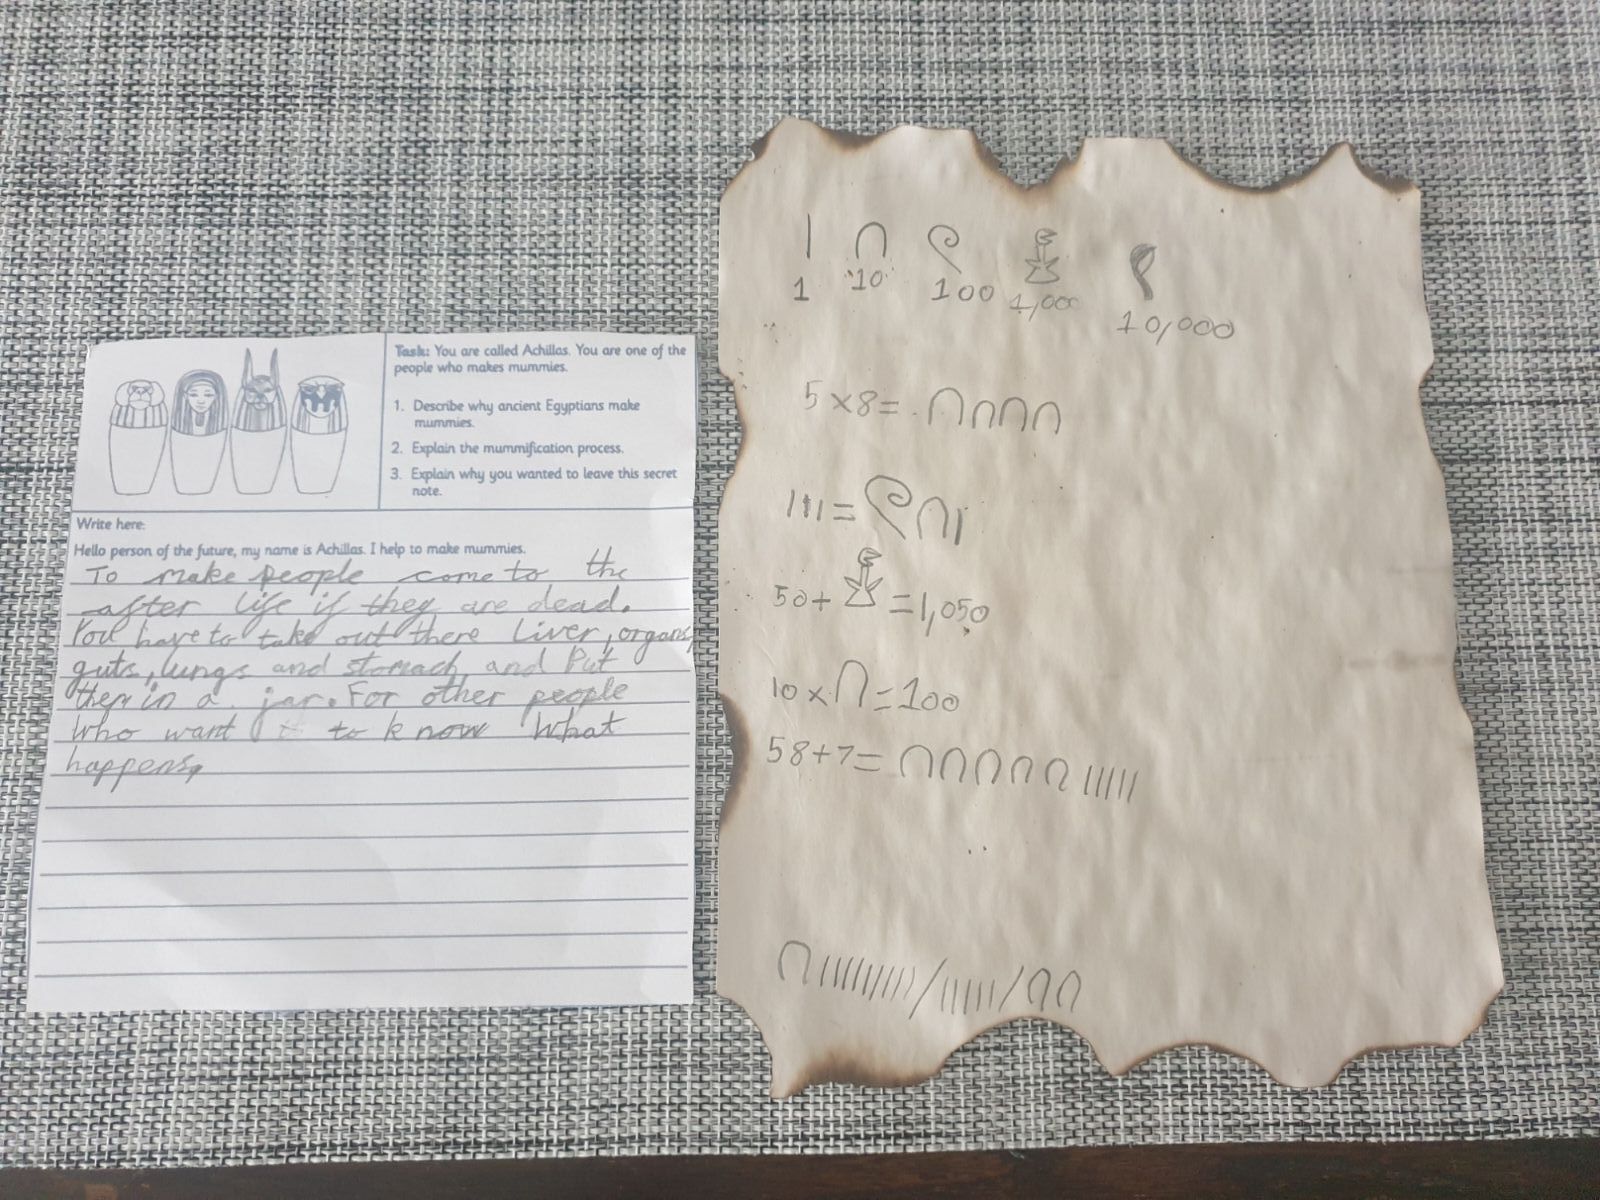 Task: You are called Achillas. You are one of the
people who makes mummies.
1. Describe why ancient Egyptians make
mummies.
2. Explain the mummification process.
3. Explain why you wanted to leave this secret
note.
Write here:
Hello person of the future, my name is Achillas. I help to make mummies.
To make people come to the
after life if they are dead.
You have to take out there liver, organs,
guts, lungs and stomach and Put
them in a jar. For other people
who want to know what
happens,
| ∩ 𓍢 𓆼 𓂭
1 10 100 1,000 10,000
5 x 8 = ∩∩∩∩
111 = 𓍢∩|
50 + 𓆼 = 1,050
10 x ∩ = 100
58 + 7 = ∩∩∩∩∩ |||||